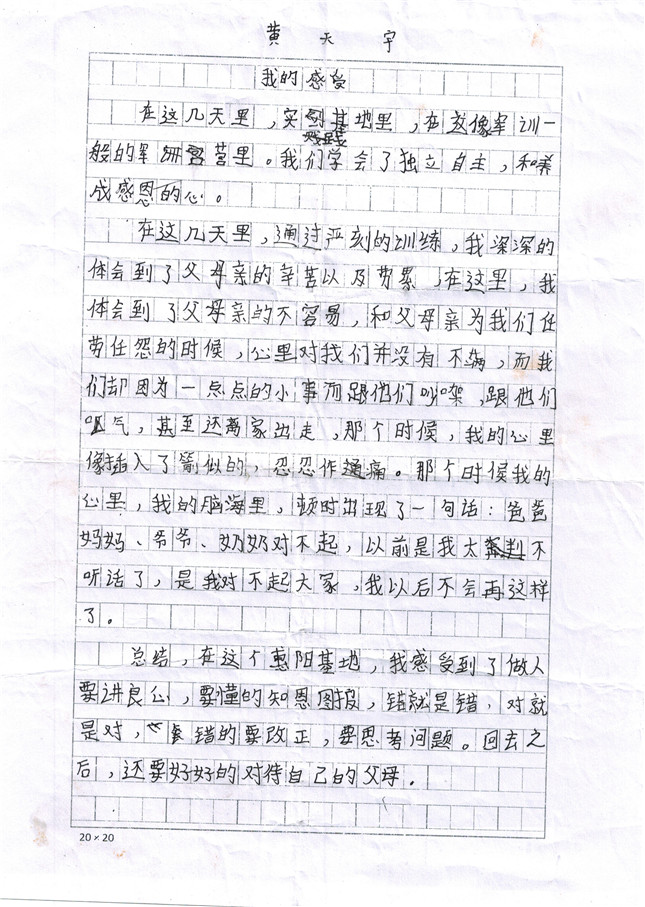 黄天宇
我的感受
在这几天里，实践基地里，在这像军训一
般的军训营里。我们学会了独立自主，和养
成感恩的心。
在这几天里，通过严刻的训练，我深深的
体会到了父母亲的辛苦以及劳累，在这里，我
体会到了父母亲的不容易，和父母亲为我们任
劳任怨的时候，心里对我们并没有不满，而我
们却因为一点点的小事而跟他们吵架，跟他们
呕气，甚至还离家出走，那个时候，我的心里
像插入了箭似的，忍忍作通痛。那个时候我的
心里，我的脑海里，顿时出现了一句话：爸爸
妈妈、爷爷、奶奶对不起，以前是我太不
听话了，是我对不起大家，我以后不会再这样
了。
总结，在这个惠阳基地，我感受到了做人
要讲良心，要懂的知恩图报，错就是错，对就
是对，错的要改正，要思考问题。回去之
后，还要好好的对待自己的父母.
20×20